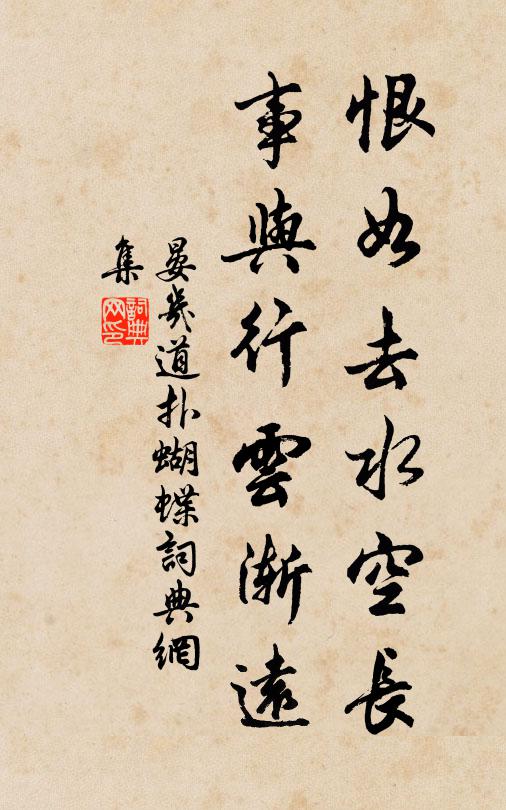 恨如去水空長
事與行雲漸遠
晏幾道撲蝴蝶詞典網
集
詞典
网印